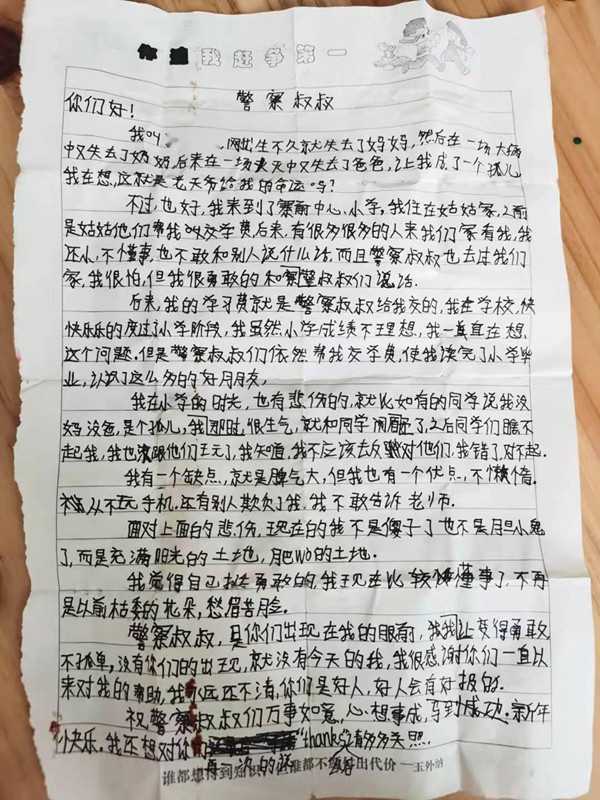 你追我赶争第一
警察叔叔
你们好！
我叫 刚出生不久就失去了妈妈，然后在一场大病
中又失去了奶奶后来在一场火灾中又失去了爸爸，让我成了一个孤儿
我在想，这就是老天爷给我的命运吗？
不过，也好，我来到了寨前中心小学。我住在姑姑家，之前
是姑姑他们帮我叫交学费后来，有很多很多的人来我们家看我，我
还小，不懂事，也不敢和别人说什么话，而且警察叔叔也去过我们
家，我很怕，但我很勇敢的和警察叔叔们说话.
后来，我的学习费就是警察叔叔给我交的，我在学校，快
快乐乐的度过了小学阶段，我虽然小学成绩不理想，我一直在想，
这个问题.但是警察叔叔们依然帮我交学费，使我读完了小学毕
业，认识了这么多的好朋友，
我在小学的时光，也有悲伤的，就比如有的同学说我没
妈没爸，是个孤儿，我那时，很生气，就和同学闹翻了，之后同学们瞧不
起我，我也没跟他们玩了，我知道，我不应该去反对他们，我错了，对不起.
我有一个缺点，就是脾气大，但我也有一个优点，不懒惰.
从不玩手机.还有别人欺负了我，我不敢告诉老师.
面对上面的悲伤，现在的我不是傻子了也不是胆小鬼
了，而是充满阳光的土地，肥wo的土地.
我觉得自己挺勇敢的，我现在比较懂事了，不再
是以前枯萎的花朵，愁眉苦脸。
警察叔叔，是你们出现在我的眼前，我让变得勇敢，
不孤单，没有你们的出现，就没有今天的我，我很感谢你们一直以
来对我的帮助，我永远还不清，你们是好人，好人会有好报的.
祝警察叔叔们万事如意，心想事成，马到成功.新年
快乐.我还想对你们 "thanks"请多多关照.
再一次的
谁都想得到知识 谁都不 出代价 —玉外纳